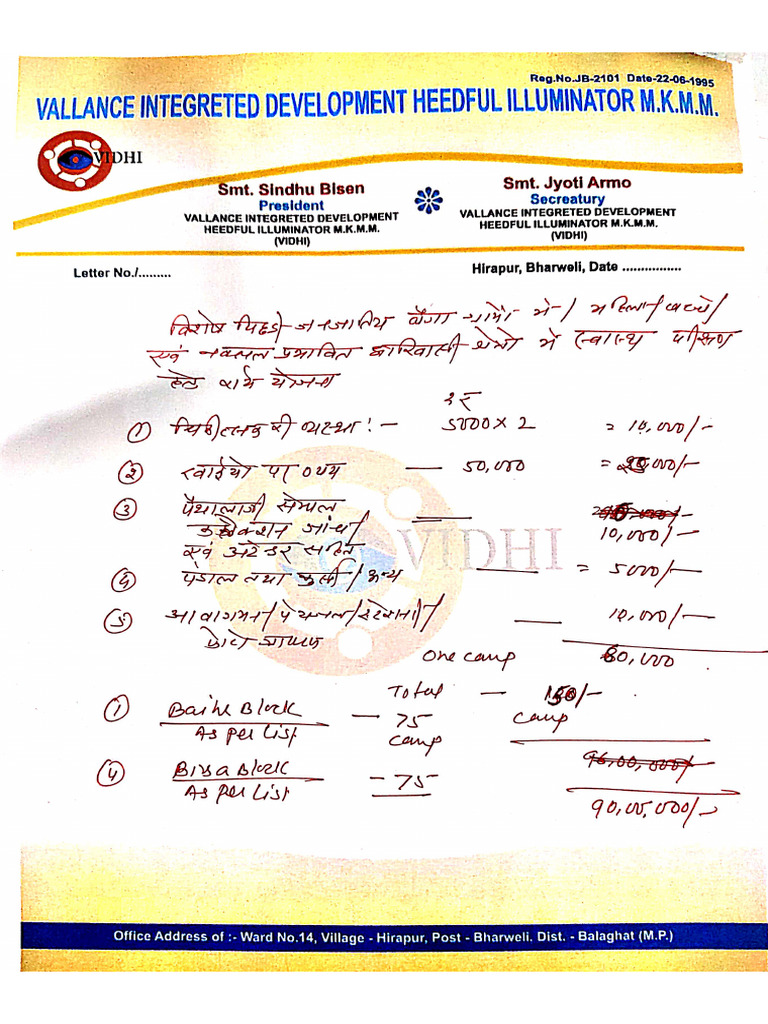 Reg.No.JB-2101 Date-22-06-1995
VALLANCE INTEGRETED DEVELOPMENT HEEDFUL ILLUMINATOR M.K.M.M.
VIDHI
Smt. Sindhu Bisen
President
VALLANCE INTEGRETED DEVELOPMENT
HEEDFUL ILLUMINATOR M.K.M.M.
(VIDHI)
Smt. Jyoti Armo
Secreatury
VALLANCE INTEGRETED DEVELOPMENT
HEEDFUL ILLUMINATOR M.K.M.M.
(VIDHI)
Letter No./.........
Hirapur, Bharweli, Date ................
विशेष पिछड़ी जनजातिय बैगा ग्रामों में / महिला / बच्चे /
एवं नक्सल प्रभावित क्षेत्रो में स्वास्थ्य
हेतु कार्य योजना
① व्यवस्था :- 5000 x 2 = 10,000/-
② दवाईयो पर व्यय — 50,000 = 25,000/-
③ पैथालाजी सेम्पल —
कलेक्शन जांच / 10,000/-
एवं अटेंडर सहित
④ पंडाल तथा कुर्सी / अन्य — = 5000/-
⑤ आवागमन / पेयजल / — 10,000/-
फोटो
One camp 60,000
Total — 150/-
① Baihr Block — 75 camp
As per List camp
96,00,000/-
④ Birsa Block — 75
As per List
90,00,000/-
VIDHI
Office Address of :- Ward No.14, Village - Hirapur, Post - Bharweli. Dist. - Balaghat (M.P.)